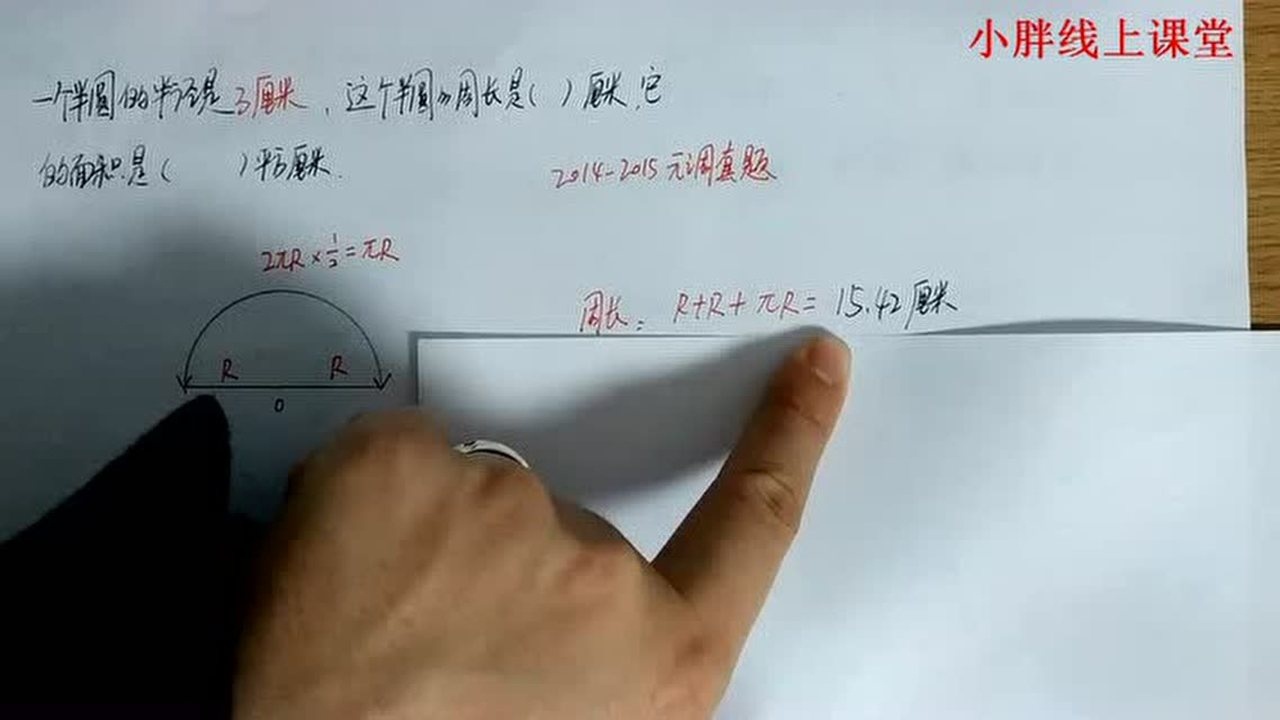 小胖线上课堂
一个半圆的半径是3厘米，这个半圆的周长是( )厘米，它
的面积是( )平方厘米.
2014-2015元调真题
2πR×1/2=πR
周长：R+R+πR=15.42厘米
R R
O